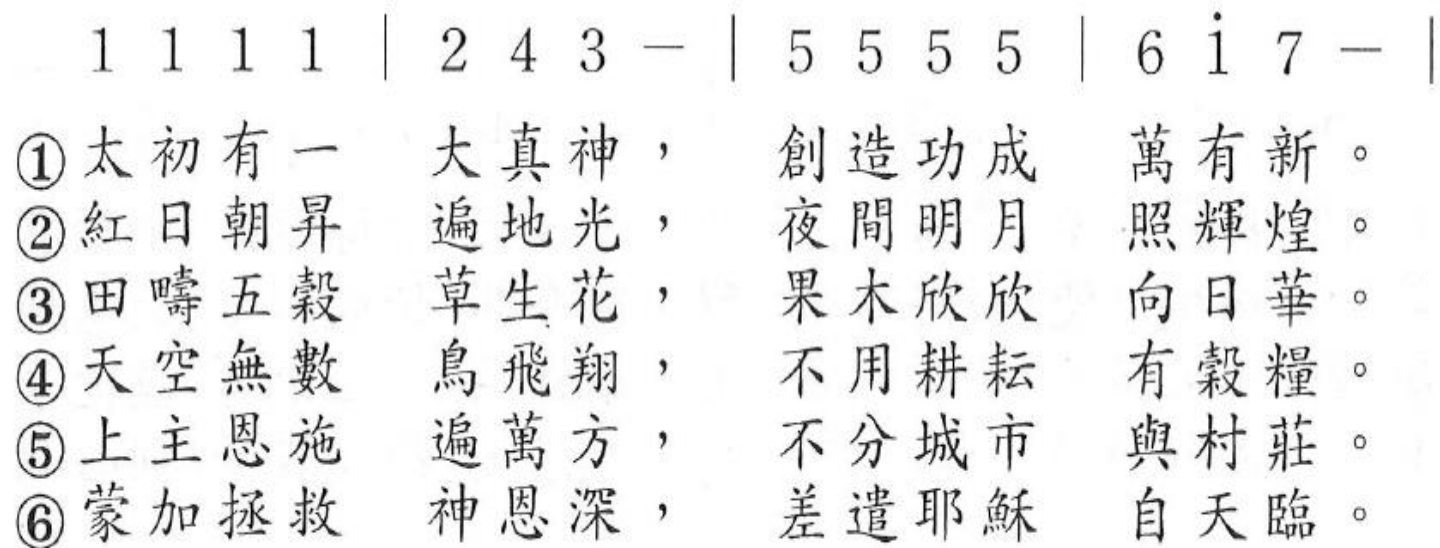 1 1 1 1 | 2 4 3 — | 5 5 5 5 | 6 1̇ 7 — |
①太初有一 大真神, 創造功成 萬有新。
②紅日朝昇 遍地光, 夜間明月 照輝煌。
③田疇五穀 草生花, 果木欣欣 向日華。
④天空無數 鳥飛翔, 不用耕耘 有穀糧。
⑤上主恩施 遍萬方, 不分城市 與村莊。
⑥蒙加拯救 神恩深, 差遣耶穌 自天臨。